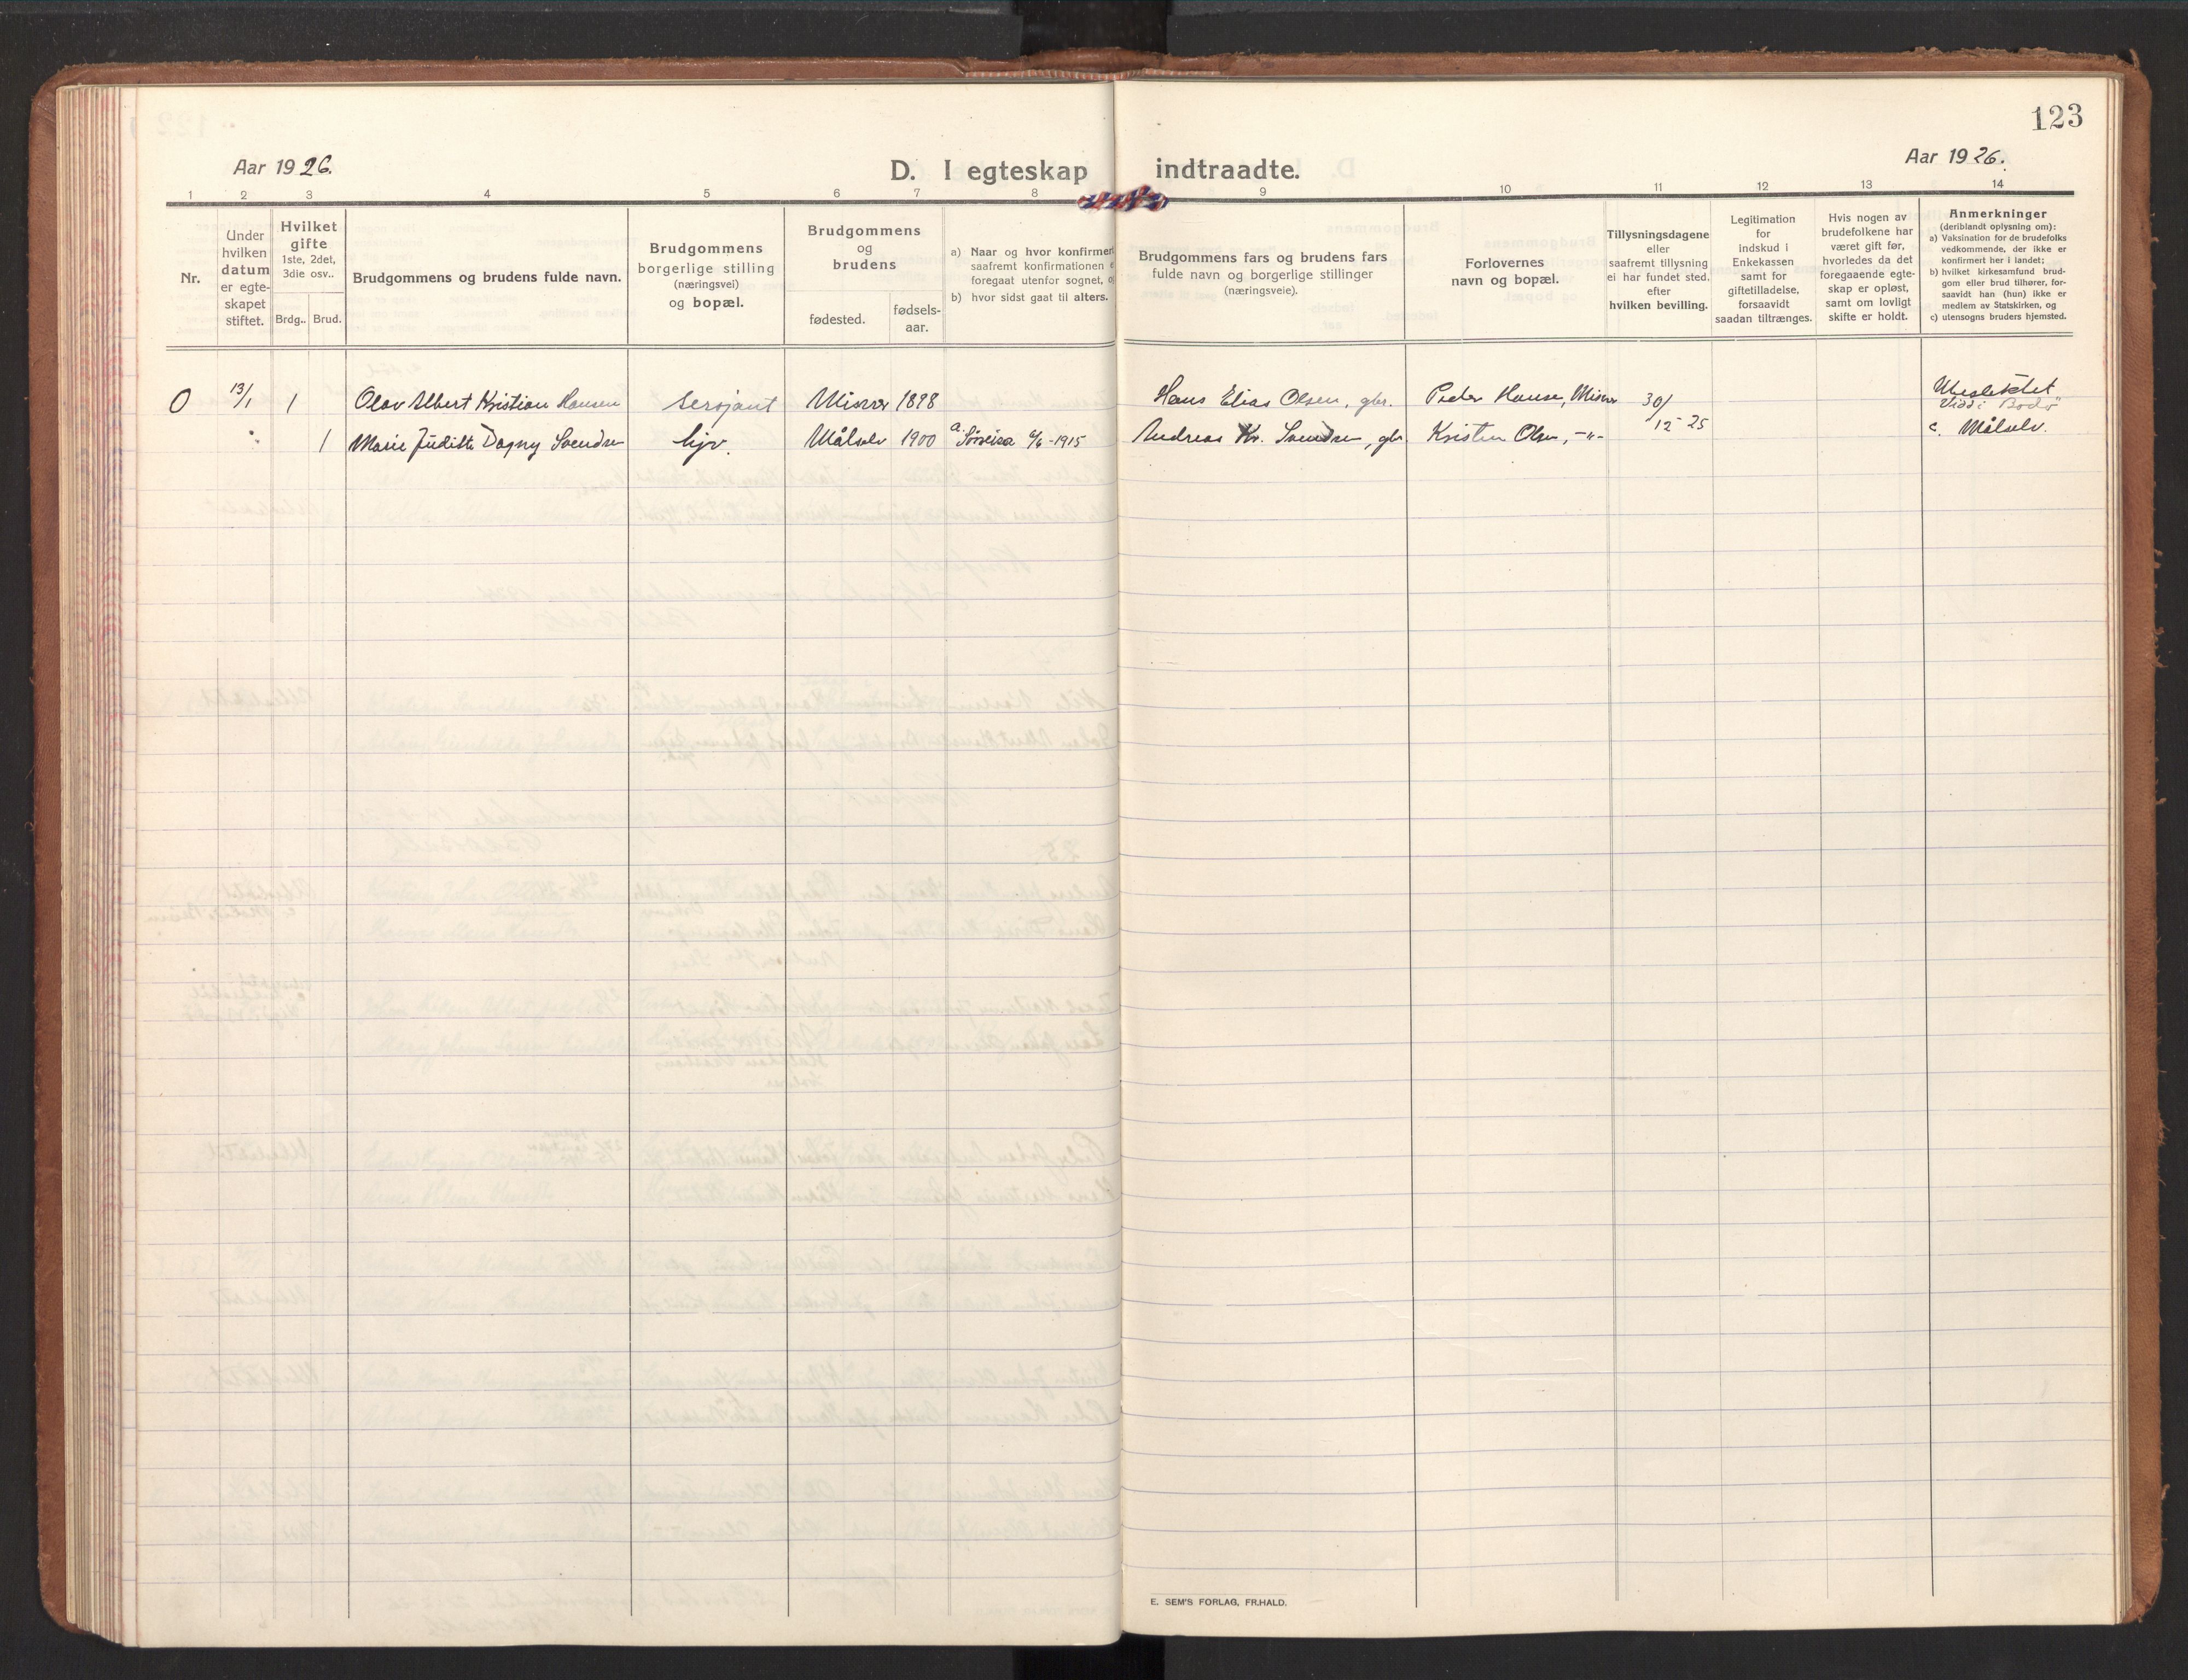 123
Aar 1926.
D. I egteskap indtraadte.
Aar 1926.
1 2 3 4 5 6 7 8 9 10 11 12 13 14
Nr.
Under
hvilken
datum
er egte-
skapet
stiftet.
Hvilket
gifte
1ste, 2det,
3die osv..
Brdg.. Brud.
Brudgommens og brudens fulde navn.
Brudgommens
borgerlige stilling
(næringsvei)
og bopæl.
Brudgommens
og
brudens
fødested.
fødsels-
aar.
a) Naar og hvor konfirmert
saafremt konfirmationen
foregaat utenfor sognet,
b) hvor sidst gaat til alters.
Brudgommens fars og brudens fars
fulde navn og borgerlige stillinger
(næringsveie).
Forlovernes
navn og bopæl.
Tillysningsdagene
eller
saafremt tillysning
ei har fundet sted,
efter
hvilken bevilling.
Legitimation
for
indskud i
Enkekassen
samt for
giftetilladelse,
forsaavidt
saadan tiltrænges.
Hvis nogen av
brudefolkene har
været gift før,
hvorledes da det
foregaaende egte-
skap er opløst,
samt om lovligt
skifte er holdt.
Anmerkninger
(deriblandt oplysning om):
a) Vaksination for de brudefolks
vedkommende, der ikke er
konfirmert her i landet;
b) hvilket kirkesamfund brud-
gom eller brud tilhører, for-
saavidt han (hun) ikke er
medlem av Statskirken, og
c) utensogns bruders hjemsted.
0 13/1 1 Olav Albert Kristian Hansen Sersjant Misvær 1898 Hans Elias Olsen, gbr. Peder Hansen, Misvær 30/ Ubeslektet
Viddi Bodø
12-25
1 Marie Judithe Dagny Svendsen hjv. Målselv 1900 a. Sørreisa 6/6-1915 Andreas Kr. Svendsen, gbr. Kristen Olsen, -"- c. Målselv.
E. SEM'S FORLAG, FR.HALD.